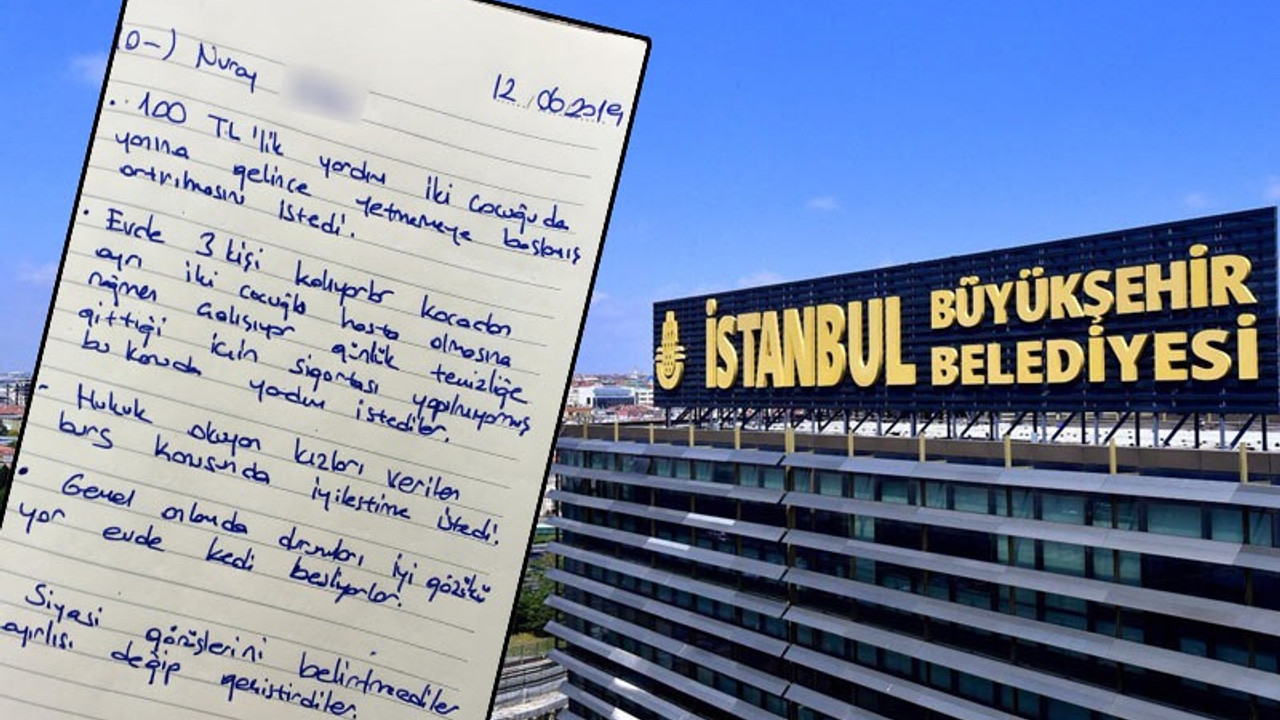 0-) Nuray
12.06.2019
. 100 TL'lik yardım iki çocuğu da
yanına gelince yetmemeye başlamış
artırılmasını istedi.
. Evde 3 kişi kalıyorlar kocadan
ayrı iki çocuğla hasta olmasına
rağmen çalışıyor günlük temizliğe
gittiği için sigortası yapılmıyomuş
bu konuda yardım istediler.
- Hukuk okuyan kızları verilen
burs konusunda iyileştirme istedi.
. Genel anlamda durumları iyi gözükü
yor evde kedi besliyorlar.
Siyasi görüşlerini belirtmediler
ayırlısı değip geçiştirdiler.
İSTANBUL BÜYÜKŞEHİR
BELEDİYESİ